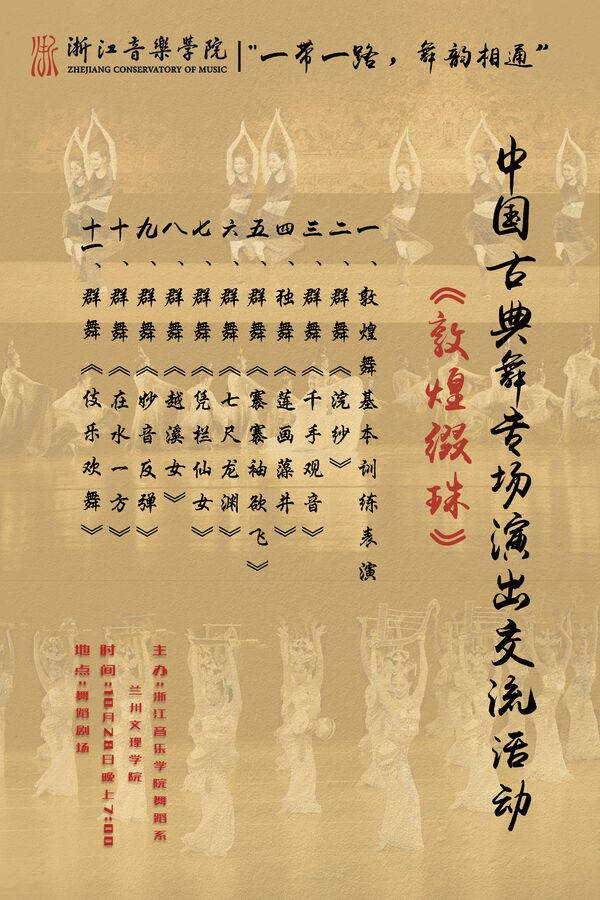 浙江音樂學院
ZHEJIANG CONSERVATORY OF MUSIC
"一带一路，舞韵相通"
中国古典舞专场演出交流活动
《敦煌缀珠》
一、敦煌舞基本训练表演
二、群舞《浣纱》
三、群舞《千手观音》
四、独舞《莲画藻井》
五、群舞《褰褰袖欲飞》
六、群舞《七尺龙渊》
七、群舞《凭栏仙女》
八、群舞《越溪女》
九、群舞《妙音反弹》
十、群舞《在水一方》
十一、群舞《伎乐欢舞》
主办:浙江音乐学院舞蹈系
兰州文理学院
时间:10月28日晚上7:00
地点:舞蹈剧场